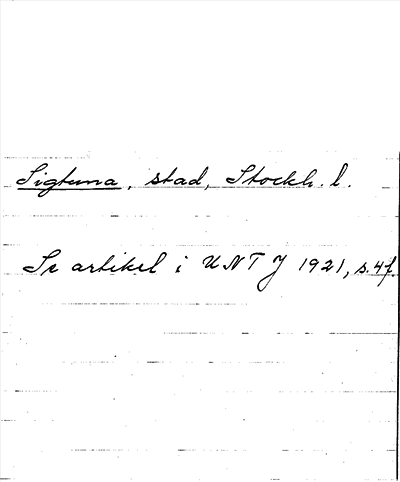 Sigtuna, stad, Stockh. l.
Se artikel i UNTJ 1921, s. 4 f.